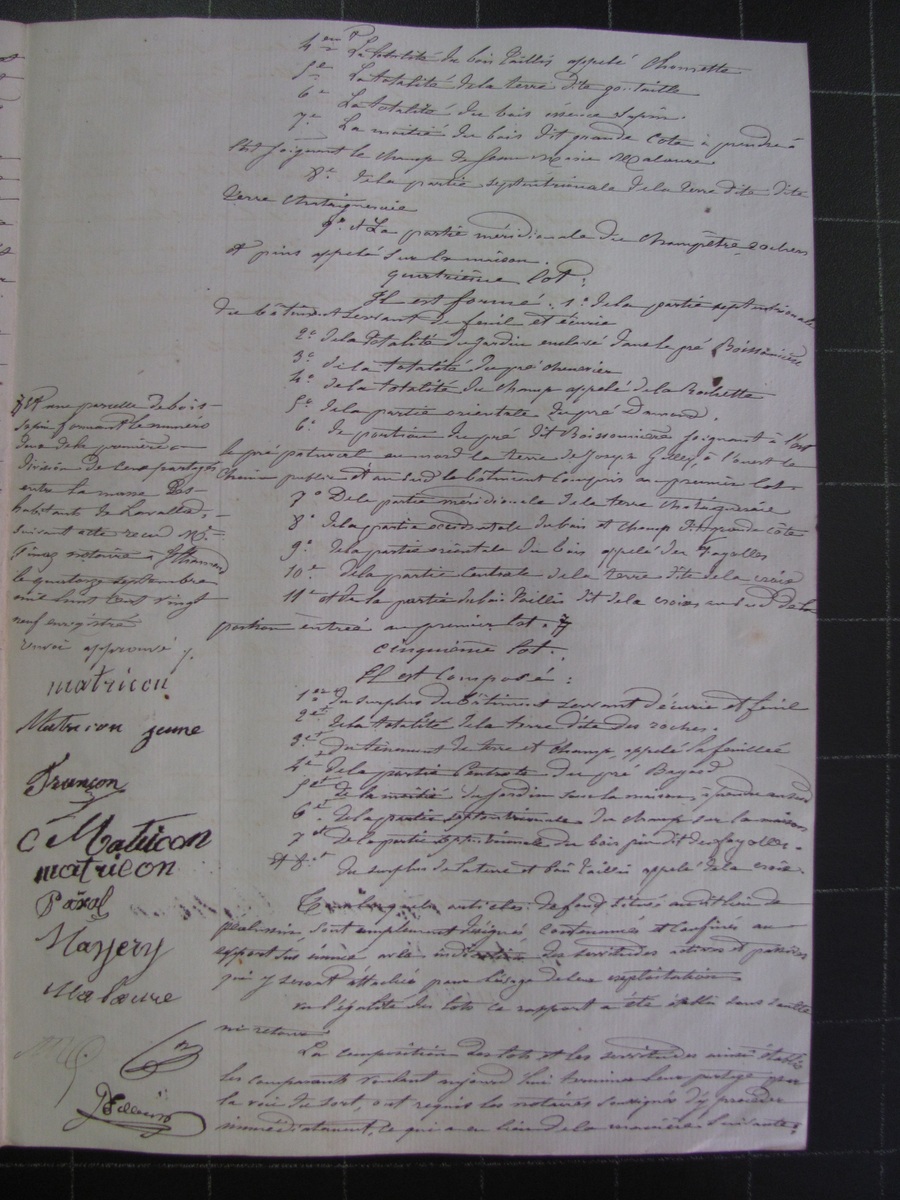 4ent La totalité du bois taillis appelé Chomette
5e La totalité de la terre dite goutaille
6e La totalité du bois essence sapin.
7e La moitié du bois dit grande Côte à prendre à
joignant le champ de Jean Marie Malaure
8e de la partie septentrionale de la terre dite dite
terre Chataigneraie
9e et La partie méridionale du Champêtre rochers
et pins appelé Sur la maison.
quatrième lot:
Il est formé. 1° de la partie septentrionale
du bâtiment servant de fenil et écurie
2e de la totalité du jardin enclavé dans le pré Boissonnière
3e de la totalité du pré
4e de la totalité du champ appelé de la Rochette
5e de la partie orientale du pré Durand.
6e de portion du pré dit Boissonnière joignant à l'est
le pré paturest au nord la terre de Joseph à l'ouest le
Chemin public et au sud le bâtiment compris au premier lot.
7e De la partie méridionale de la terre Chataigneraie
8e de la partie occidentale du bois et champ dit grande côte
9e de la partie orientale du bois appelé des fayolles
10e de la partie Centrale de la terre dite de la croix
11e et de la partie du bois taillis dit de la croix au sud de la
portion entrée au premier lot.
cinquième lot:
Il est Composé:
1ent du surplus du bâtiment servant d'écurie et fenil
2ent de la totalité de la terre dite des roches.
3et du tènement de terre et champ, appelé la feuillée
4e de la partie Centrale du pré Bayard
5et de la moitié du jardin sous la maison, à prendre au sud
6et de la partie septentrionale du champ sur la maison
7et de la partie septentrionale du bois pin dit des fayolles.
et 8et du surplus de la terre et bois taillis appelé de la croix.
Tous lesquels articles de fond situés audit lieu de
sont amplement désignés contenances et confinés au
rapport sus énoncé avec indication des servitudes actives et passives
qui y seront attachés pour l'usage de leur exploitation
vu l'égalité des lots ce rapport a été établi sans soulte
ni retour.
La composition des lots et les servitudes ainsi établis
les comparants voulant aujourd'hui terminer leur partage par
la voie du sort, ont requis les notaires soussignés d'y procéder
immédiatement, ce qui a eu lieu de la manière Suivante:
Et une parcelle de bois
sapin formant le numéro
deux de la première
division de ceux partagés
entre la masse des
habitants de Lavallas,
suivant acte reçu Me
notaire à
le quatorze septembre
mil huit cent vingt
neuf enregistré
renvoi approuvé
matricon
Matricon jeune
Françon
C Matricon
matricon
Paral
Mayery
Malaure